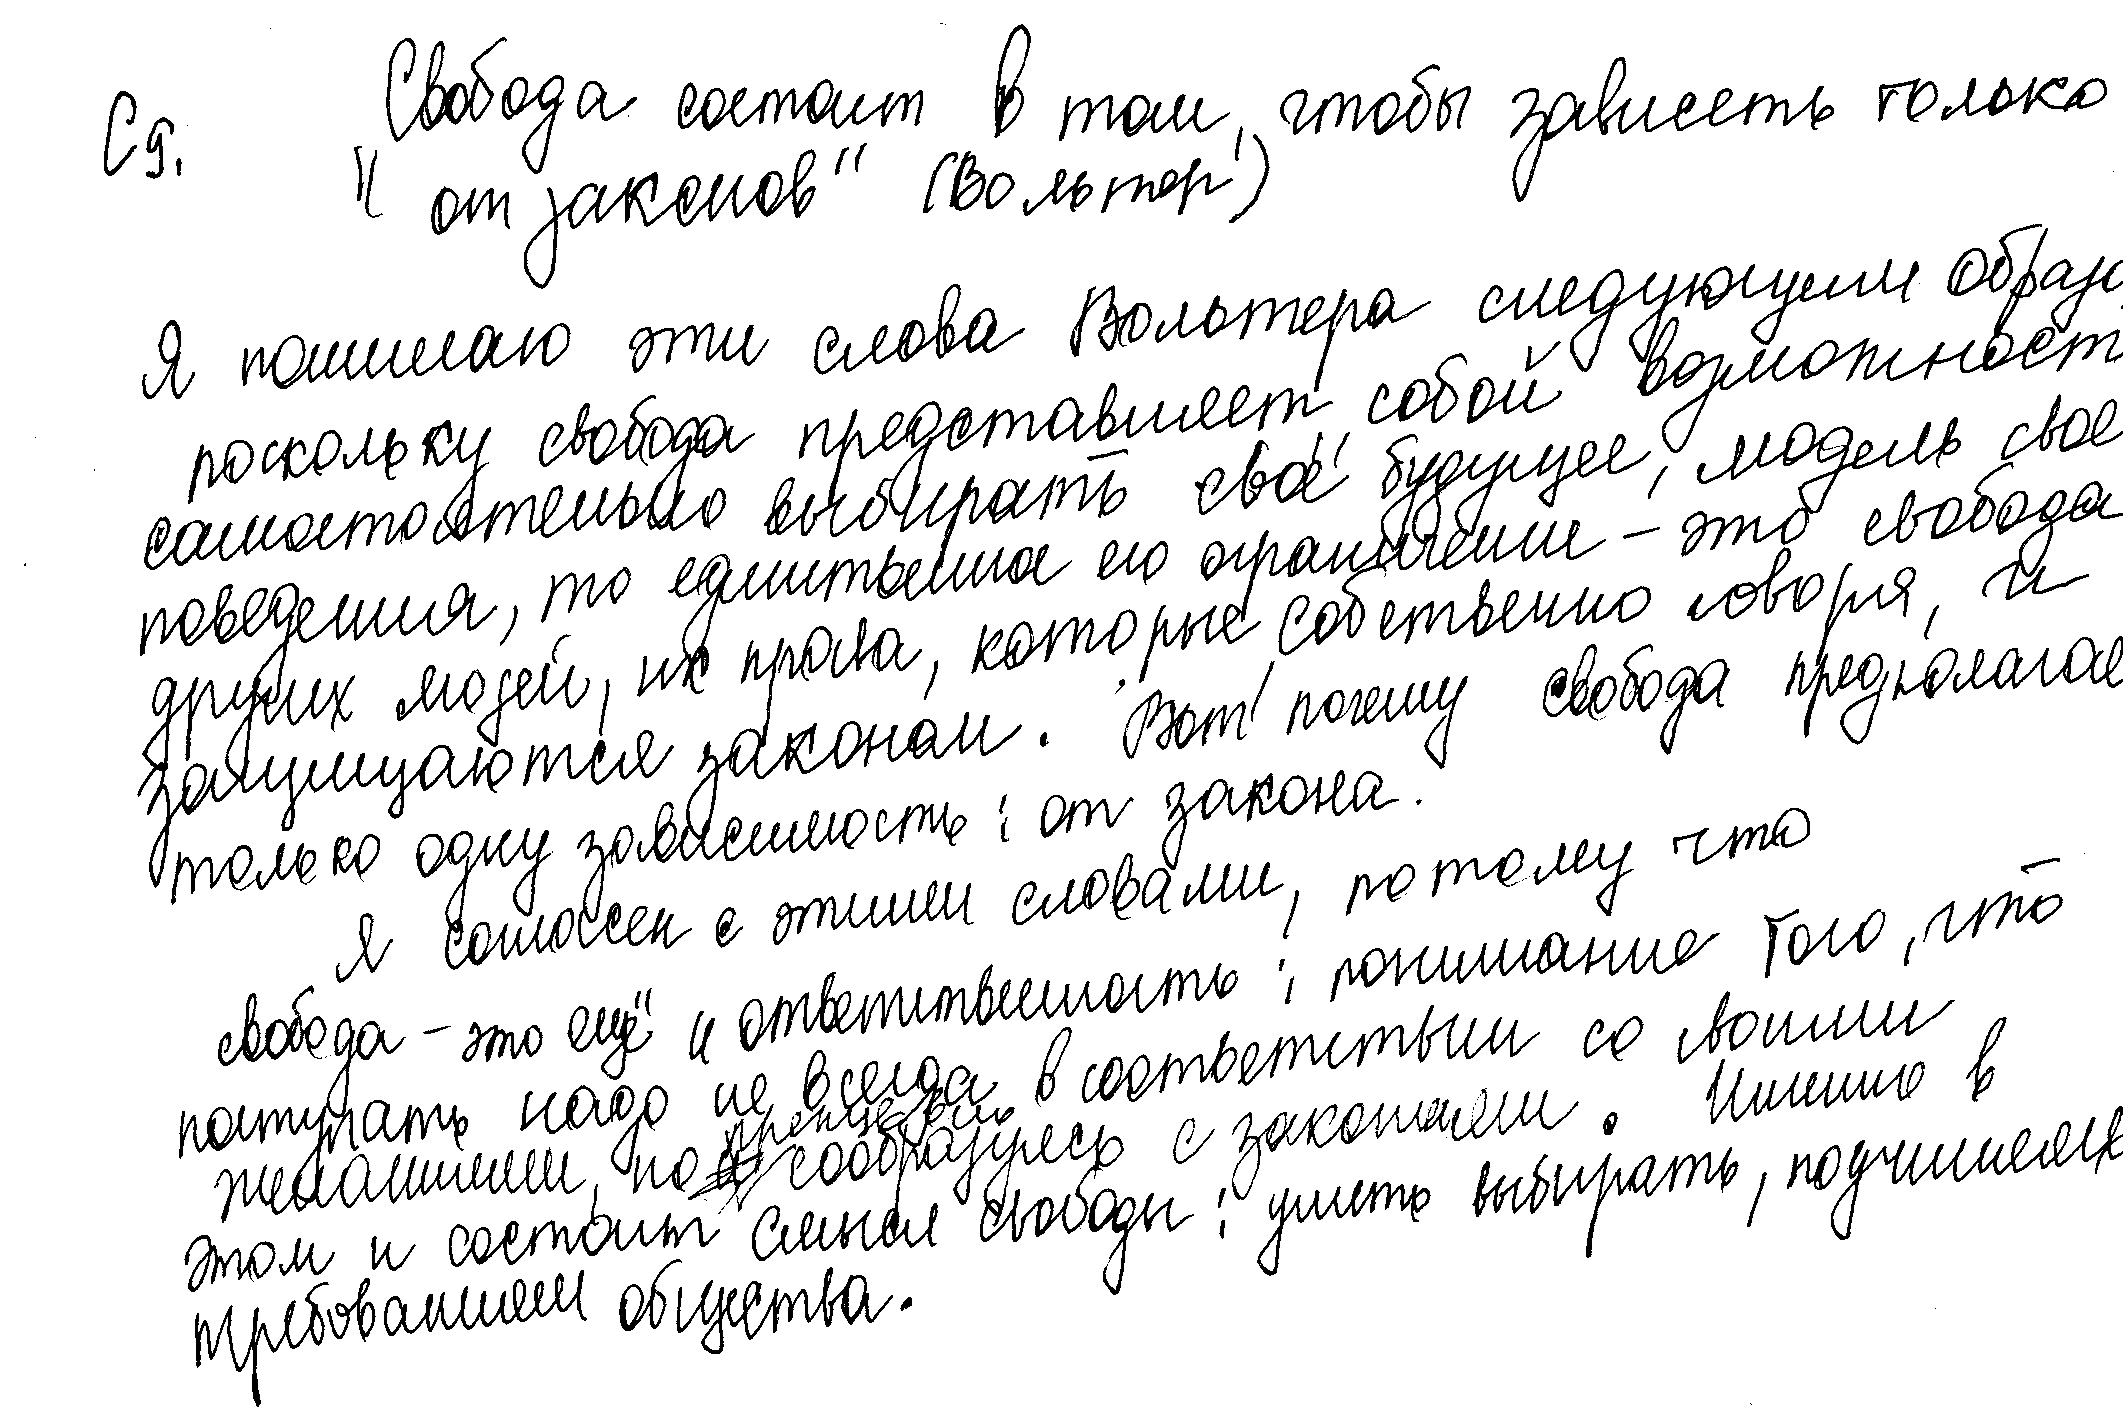 С9. Свобода состоит в том, чтобы зависеть только
"от законов" (Вольтер)
Я понимаю эти слова Вольтера следующим образо
поскольку свобода представляет собой возможност
самостоятельно выбирать своё будущее, модель свое
поведения, то единственное его ограничение - это свобода
других людей, их права, которые, собственно говоря, и
защищаются законом. Вот почему свобода предполагае
только одну зависимость: от закона.
Я согласен с этими словами, потому что
свобода - это ещё и ответственность; понимание того, что
поступать надо не всегда в соответствии со своими
желаниями, но сообразуясь с законами. Именно в
этом и состоит смысл свободы: уметь выбирать, подчиняясь
требованиям общества.